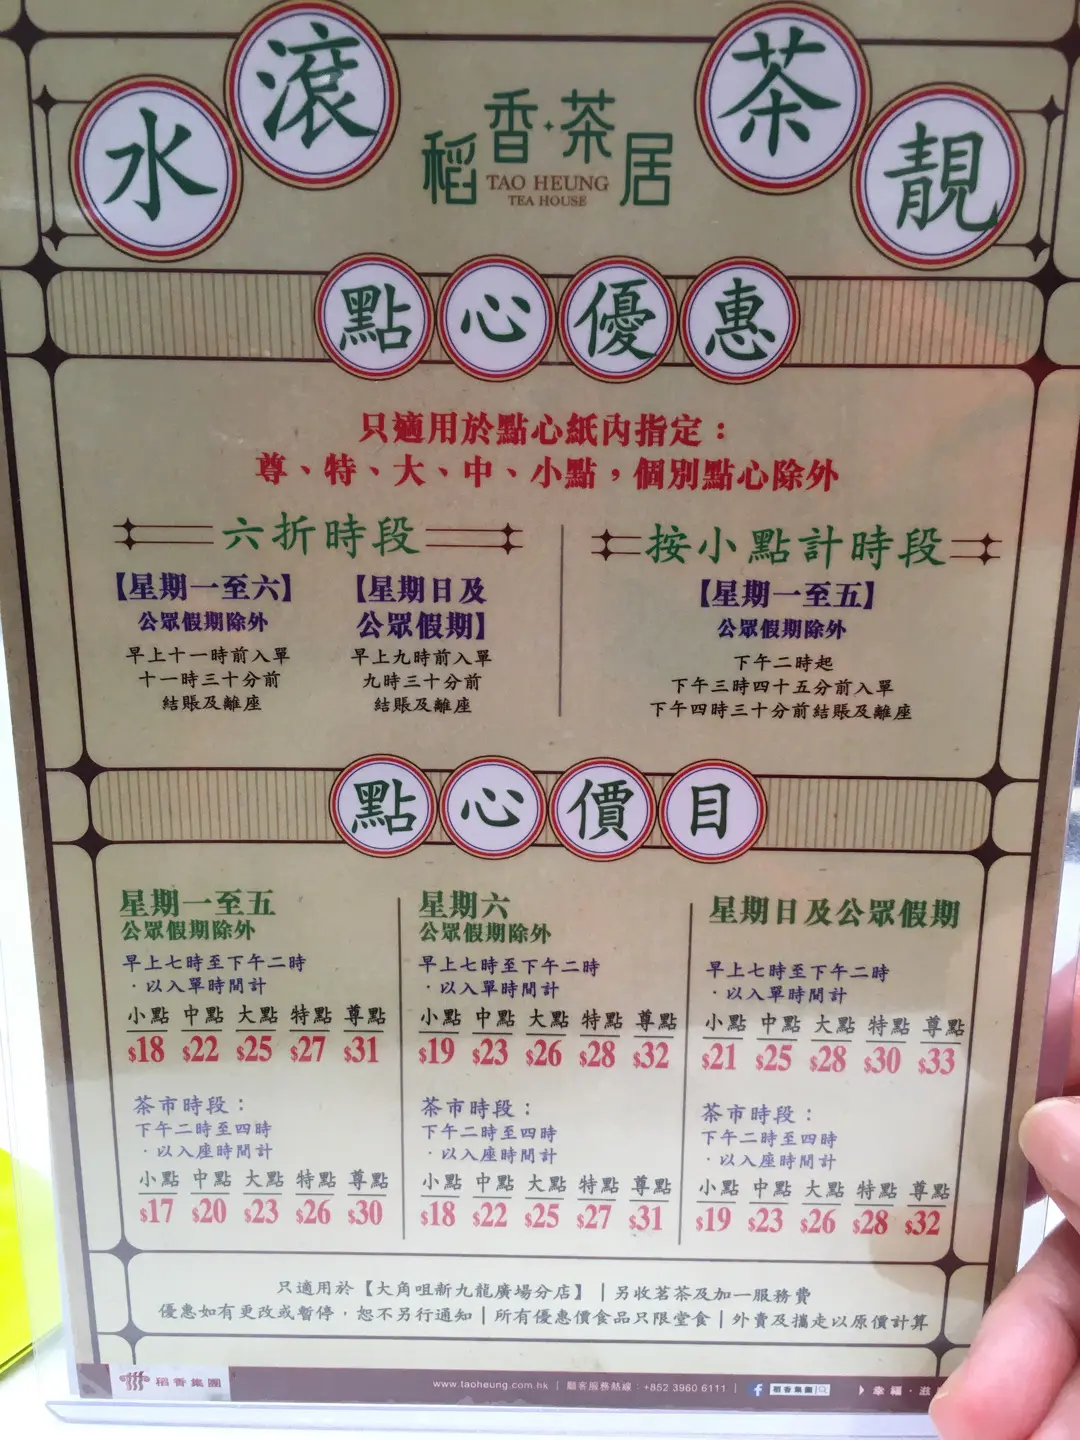 水滾茶靚
稻香·茶居
TAO HEUNG
TEA HOUSE
點心優惠
只適用於點心紙內指定：
尊、特、大、中、小點，個別點心除外
六折時段
【星期一至六】
公眾假期除外
早上十一時前入單
十一時三十分前
結賬及離座
【星期日及
公眾假期】
早上九時前入單
九時三十分前
結賬及離座
按小點計時段
【星期一至五】
公眾假期除外
下午二時起
下午三時四十五分前入單
下午四時三十分前結賬及離座
點心價目
星期一至五
公眾假期除外
早上七時至下午二時
·以入單時間計
小點 中點 大點 特點 尊點
$18 $22 $25 $27 $31
茶市時段：
下午二時至四時
·以入座時間計
小點 中點 大點 特點 尊點
$17 $20 $23 $26 $30
星期六
公眾假期除外
早上七時至下午二時
·以入單時間計
小點 中點 大點 特點 尊點
$19 $23 $26 $28 $32
茶市時段：
下午二時至四時
·以入座時間計
小點 中點 大點 特點 尊點
$18 $22 $25 $27 $31
星期日及公眾假期
早上七時至下午二時
·以入單時間計
小點 中點 大點 特點 尊點
$21 $25 $28 $30 $33
茶市時段：
下午二時至四時
·以入座時間計
小點 中點 大點 特點 尊點
$19 $23 $26 $28 $32
只適用於【大角咀新九龍廣場分店】｜另收茗茶及加一服務費
優惠如有更改或暫停，恕不另行通知｜所有優惠價食品只限堂食｜外賣及攜走以原價計算
稻香集團
www.taoheung.com.hk｜顧客服務熱線：+852 3960 6111｜
稻香集團
幸福·滋